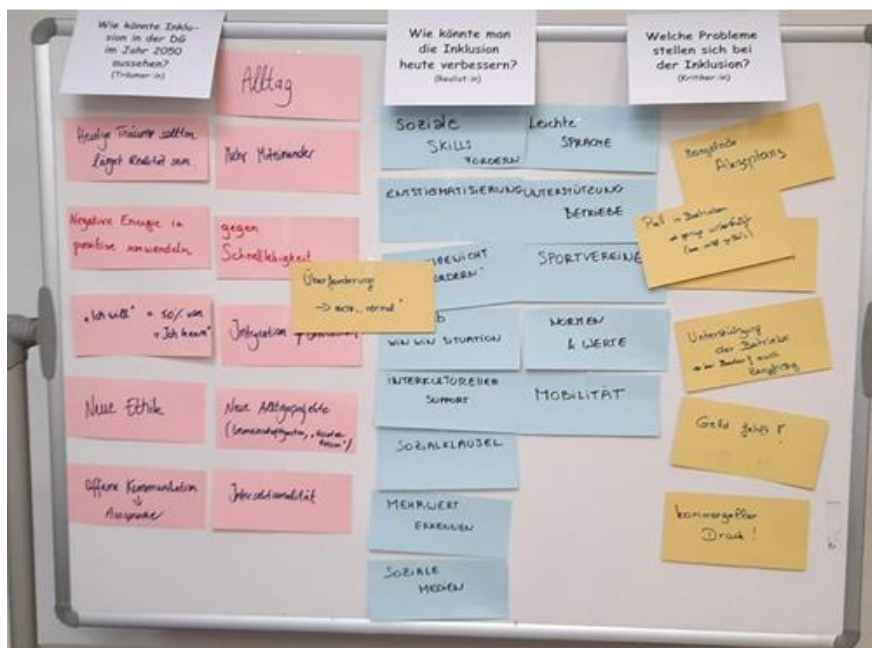 Wie könnte Inklu-
sion in der DG
im Jahr 2050
aussehen?
(Träumer:in)
Alltag
Heutige Träume sollten
längst Realität sein
Mehr Miteinander
Negative Energie in
positive umwandeln
gegen
Schnelllebigkeit
"Ich will" = 50% von
"Ich kann"
Integration
Neue Ethik
Neue Alltagsprojekte
Offene Kommunikation
Aussprache
Intersektionalität
Wie könnte man
die Inklusion
heute verbessern?
(Realist:in)
Soziale
SKILLS
FÖRDERN
Leichte
SPRACHE
ENTSTIGMATISIERUNG
UNTERSTÜTZUNG
BETRIEBE
SPORTVEREINE
WIN WIN SITUATION
NORMEN
& WERTE
INTERKULTURELLER
SUPPORT
MOBILITÄT
SOZIALKLAUSEL
MEHRWERT
ERKENNEN
SOZIALE
MEDIEN
Überforderung
Welche Probleme
stellen sich bei
der Inklusion?
(Kritiker:in)
Mangelnde
Akzeptanz
Unterstützung
der Betriebe
Geld fehlt!
Druck!